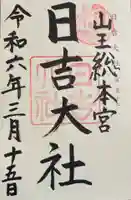 山王総本宮
日吉大社
令和六年三月十五日